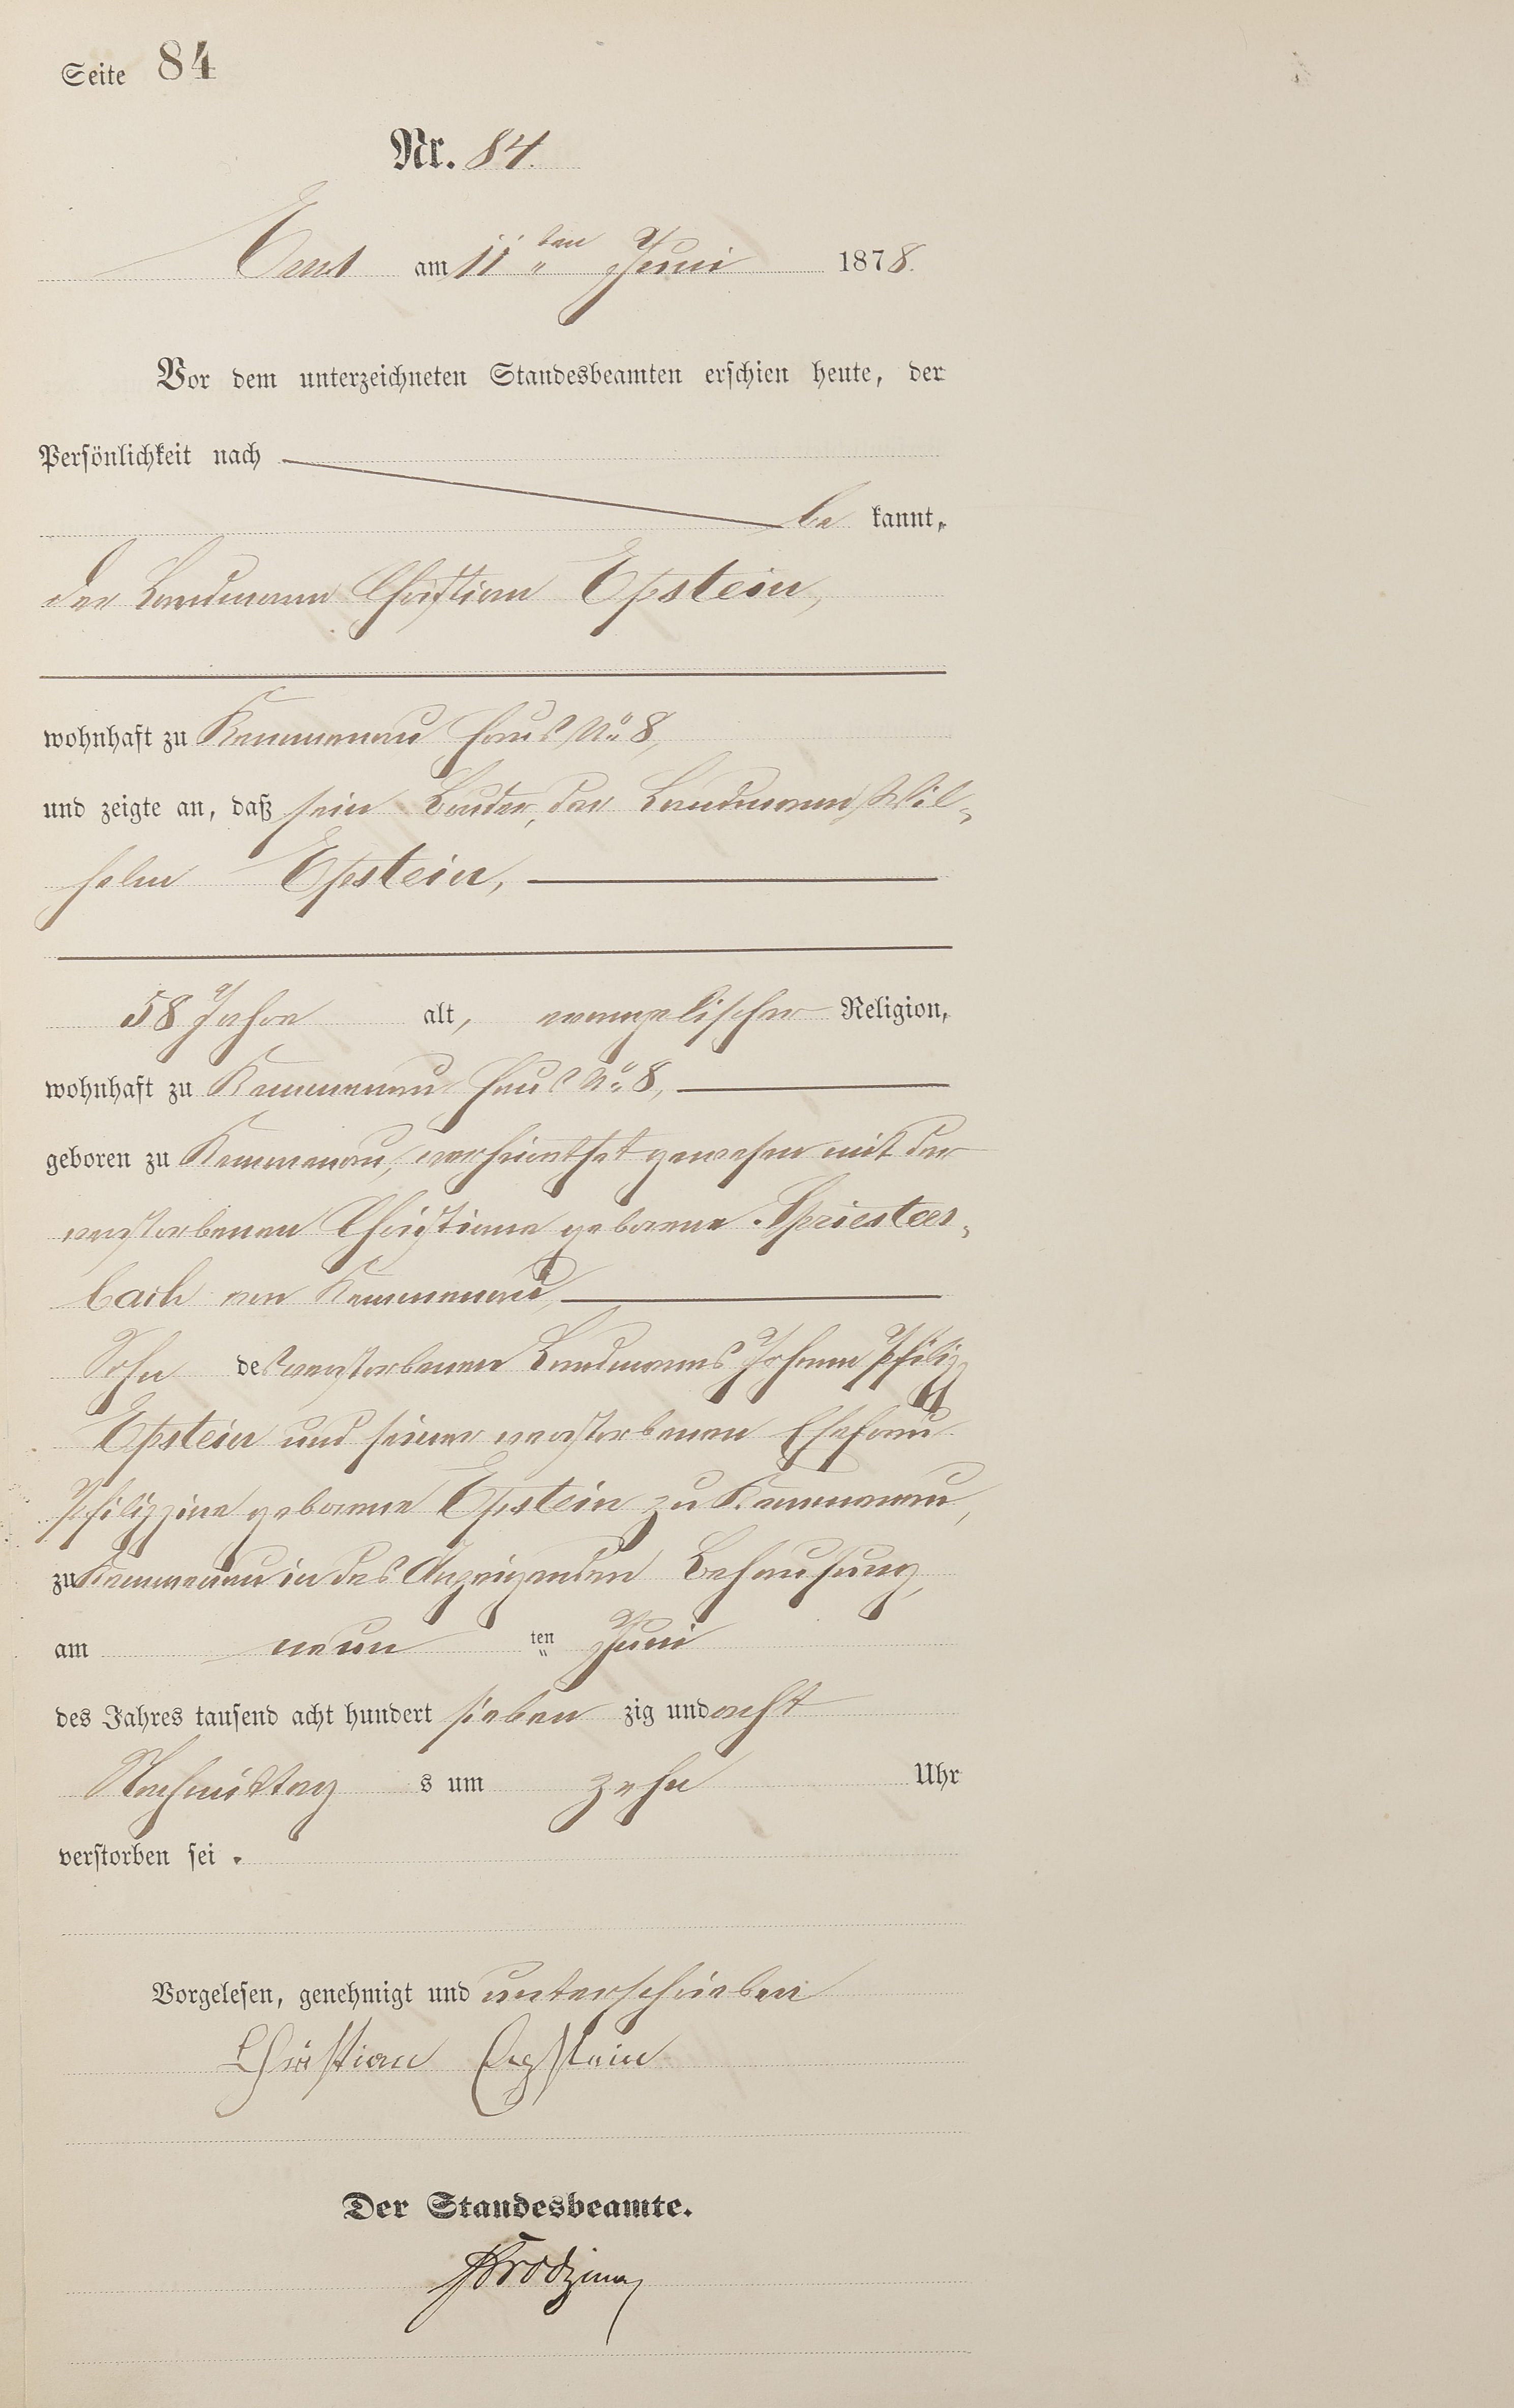 Seite 84
Nr. 84.
Ems am 11ten Juni 1878.
Vor dem unterzeichneten Standesbeamten erschien heute, der
Persönlichkeit nach
be kannt,
der Landmann Christian Epstein,
wohnhaft zu Kemmenau Haus No 8,
und zeigte an, daß sein Bruder, der Landmann Wil-
helm Epstein,
58 Jahre alt, evangelischer Religion,
wohnhaft zu Kemmenau Haus No 8,
geboren zu Kemmenau, verheirathet gewesen mit der
verstorbenen Christiane geborene Spriesters-
bach von Kemmenau,
Sohn des verstorbenen Landmanns Johann Philipp
Epstein und seiner verstorbenen Ehefrau
Philippine geborene Epstein zu Kemmenau,
zu Kemmenau in des Anzeigenden Behausung,
am neun ten Juni
des Jahres tausend acht hundert sieben zig und acht
Nachmittag s um zehn Uhr
verstorben sei.
Vorgelesen, genehmigt und unterschrieben
Christian Epstein
Der Standesbeamte.